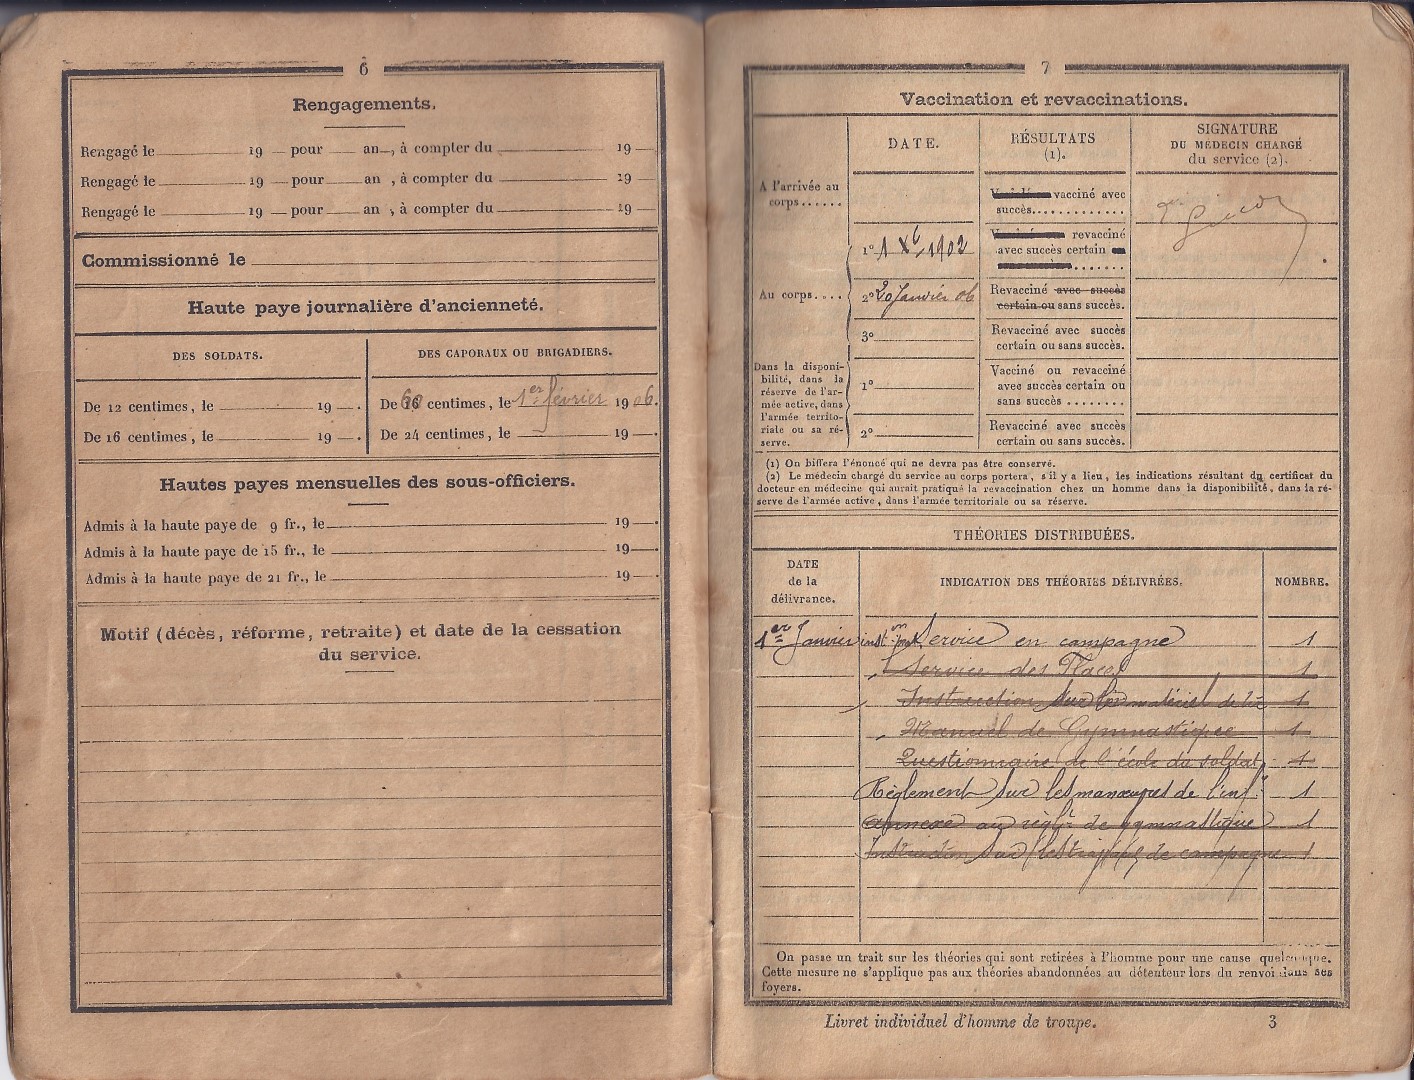 6
Rengagements.
Rengagé le 19 pour an , à compter du 19
Rengagé le 19 pour an , à compter du 19
Rengagé le 19 pour an , à compter du 19
Commissionné le
Haute paye journalière d'ancienneté.
DES SOLDATS.
De 12 centimes, le 19 .
De 16 centimes, le 19 .
DES CAPORAUX OU BRIGADIERS.
De 60 centimes, le 1er février 1906.
De 24 centimes, le 19 .
Hautes payes mensuelles des sous-officiers.
Admis à la haute paye de 9 fr., le 19 .
Admis à la haute paye de 15 fr., le 19 .
Admis à la haute paye de 21 fr., le 19 .
Motif (décès, réforme, retraite) et date de la cessation
du service.
7
Vaccination et revaccinations.
DATE.
RÉSULTATS
(1).
SIGNATURE
DU MÉDECIN CHARGÉ
du service (2).
A l'arrivée au
corps......
vacciné avec
succès.............
Au corps....
1° 1 Xb 1902
revacciné
avec succès certain
.......
2° 20 Janvier 06
Revacciné avec succès
certain ou sans succès.
3°
Revacciné avec succès
certain ou sans succès.
Dans la disponi-
bilité, dans la
réserve de l'ar-
mée active, dans
l'armée territo-
riale ou sa ré-
serve.
1°
Vacciné ou revacciné
avec succès certain ou
sans succès ........
2°
Revacciné avec succès
certain ou sans succès.
(1) On biffera l'énoncé qui ne devra pas être conservé.
(2) Le médecin chargé du service au corps portera, s'il y a lieu, les indications résultant du certificat du
docteur en médecine qui aurait pratiqué la revaccination chez un homme dans la disponibilité, dans la ré-
serve de l'armée active, dans l'armée territoriale ou sa réserve.
THÉORIES DISTRIBUÉES.
DATE
de la
délivrance.
INDICATION DES THÉORIES DÉLIVRÉES.
NOMBRE.
1er Janvier Service en campagne 1
Service des Places 1
Instruction sur le matériel de 1
Manuel de Gymnastique 1
Questionnaire de l'école du soldat 1
Règlement sur les manœuvres de l'inf 1
Annexe au règlt de gymnastique 1
Instruction sur les de campagne 1
On passe un trait sur les théories qui sont retirées à l'homme pour une cause quelconque.
Cette mesure ne s'applique pas aux théories abandonnées au détenteur lors du renvoi dans ses
foyers.
Livret individuel d'homme de troupe. 3